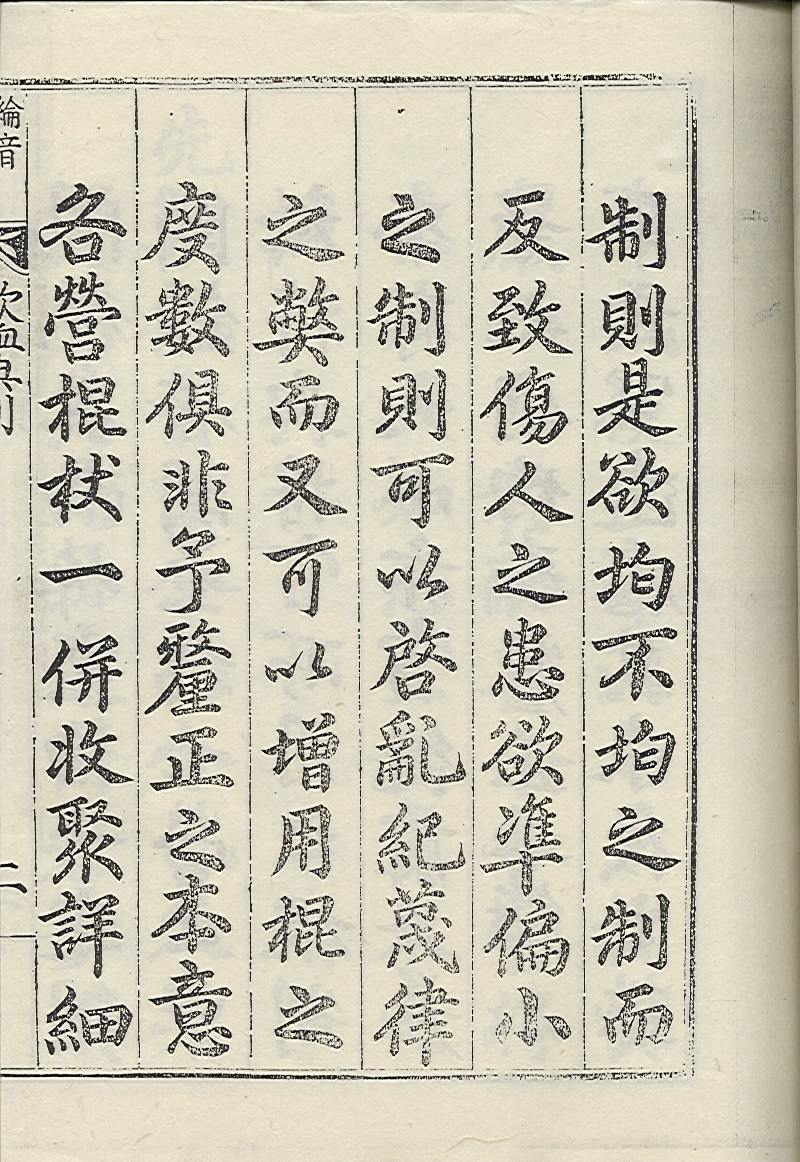 制則是欲均不均之制而
反致傷人之患欲準偏小
之制則可以啓亂紀蔑律
之獘而又可以增用棍之
度數俱非予釐正之本意
各營棍杖一併收聚詳細
綸音
欽恤典則
二